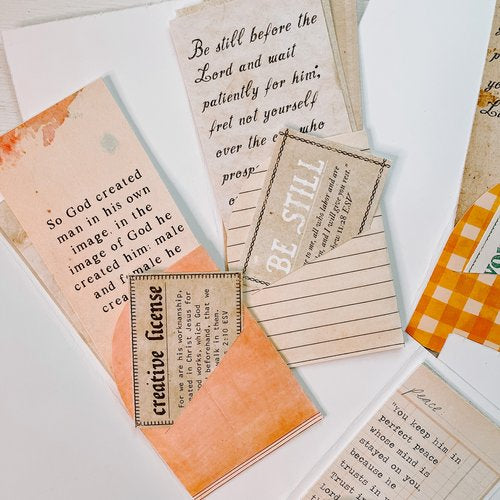 Be still before the
Lord and wait
patiently for him;
fret not yourself
over the one who
So God created
man in his own
image, in the
image of God he
created him; male
and female he
BE STILL
to me, all who labor and are
and I will give you rest."
11:28 ESV
creative license
For we are his workmanship,
in Christ Jesus for
works, which God
beforehand, that we
walk in them.
2:10 ESV
peace
"You keep him in
perfect peace
whose mind is
stayed on you
because he
trusts in
Trust in
Lord